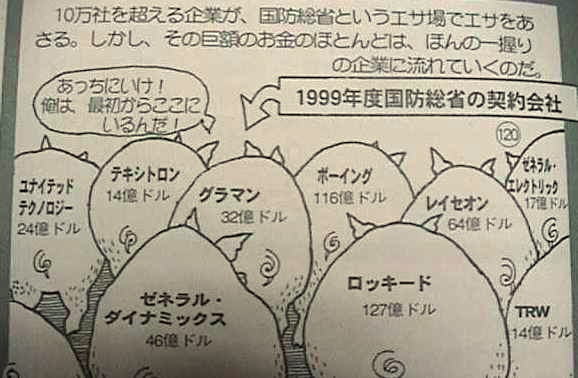 10万社を超える企業が、国防総省というエサ場でエサをあ
さる。しかし、その巨額のお金のほとんどは、ほんの一握り
の企業に流れていくのだ。
あっちにいけ!
俺は、最初からここに
いるんだ!
1999年度国防総省の契約会社
120
ユナイテッド
テクノロジー
24億ドル
テキシトロン
14億ドル
グラマン
32億ドル
ボーイング
116億ドル
レイセオン
64億ドル
ゼネラル・
エレクトリック
17億ドル
ゼネラル・
ダイナミックス
46億ドル
ロッキード
127億ドル
TRW
14億ドル